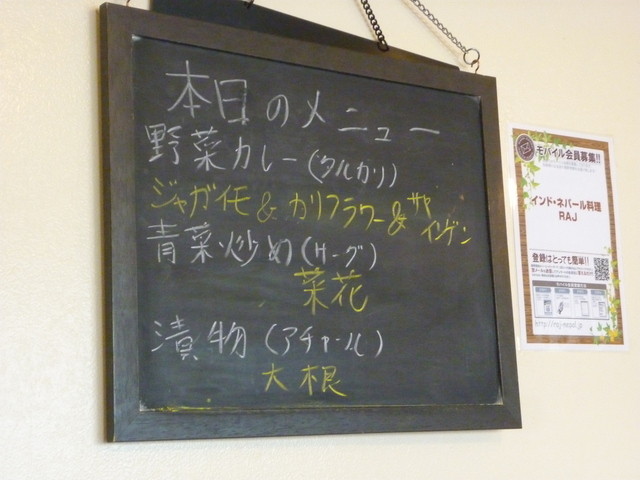 本日のメニュー
野菜カレー(タルカリ)
ジャガイモ&カリフラワー&サヤインゲン
青菜炒め(サーグ)
菜花
漬物(アチャール)
大根
モバイル会員募集!!
インド・ネパール料理
RAJ
登録はとっても簡単!!